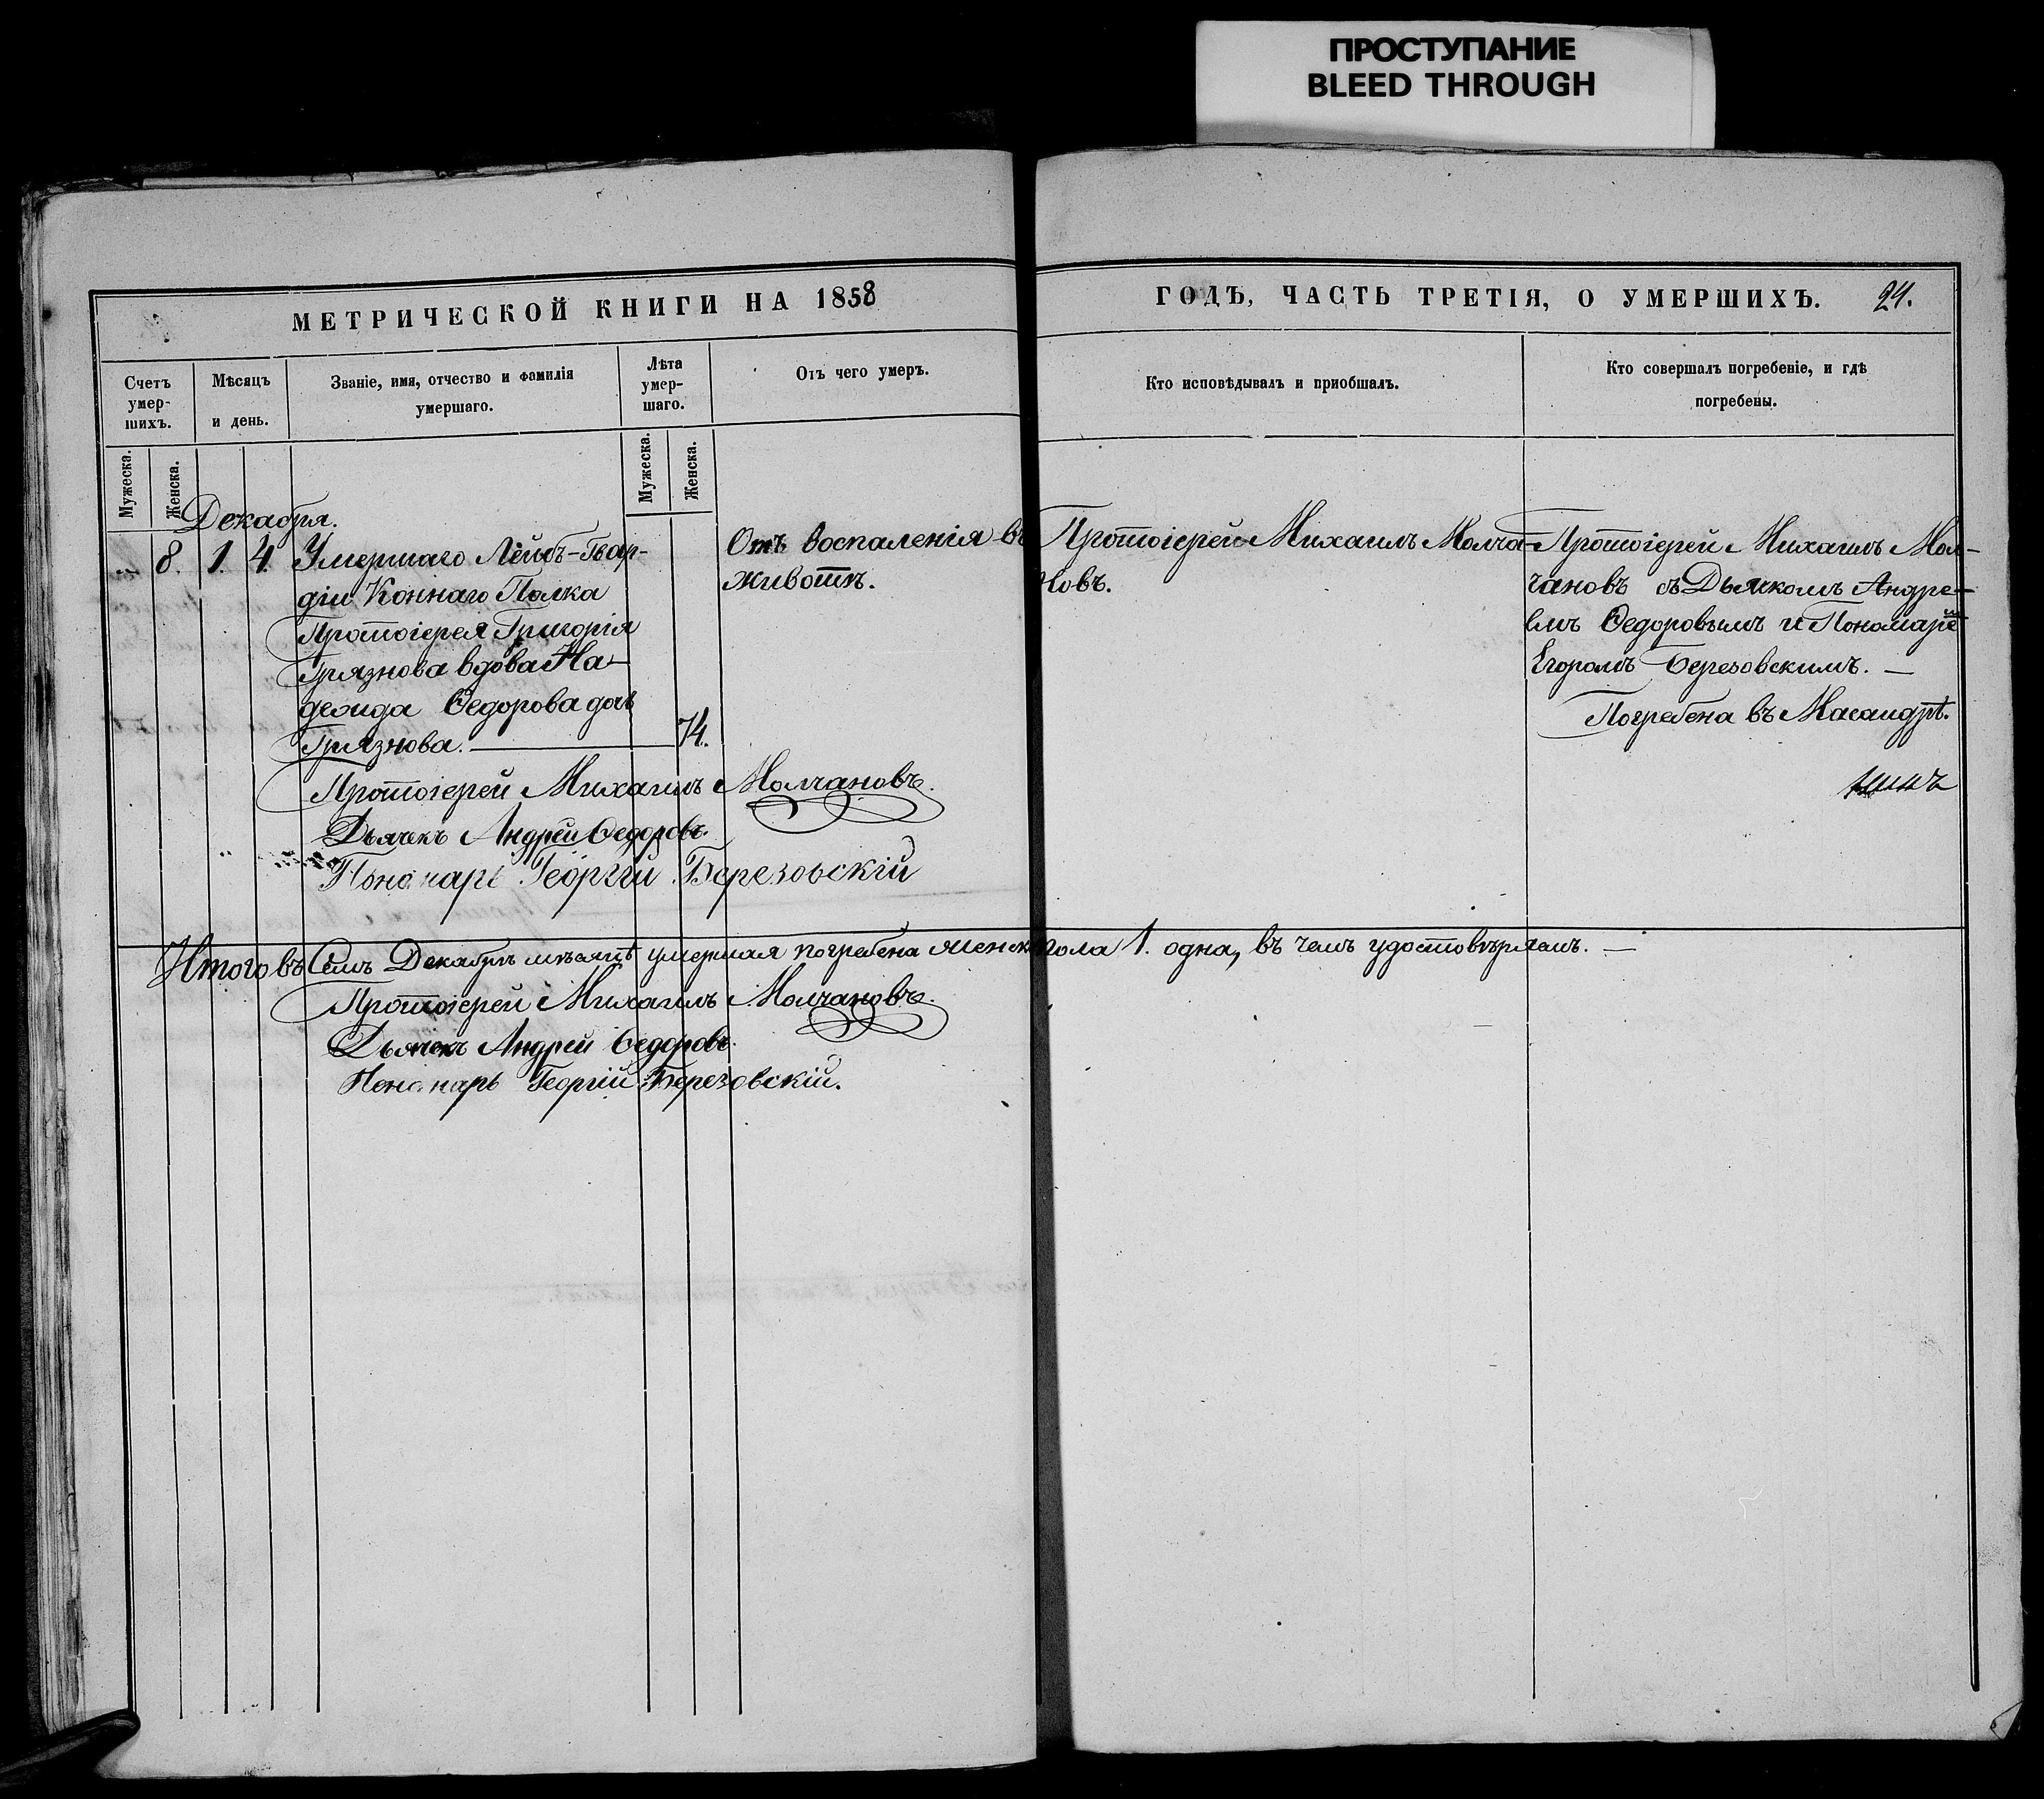 ПРОСТУПАНИЕ
BLEED THROUGH
МЕТРИЧЕСКОЙ КНИГИ НА 1858
ГОДЪ, ЧАСТЬ ТРЕТІЯ, О УМЕРШИХЪ. 24.
Счетъ
умер-
шихъ.
Мѣсяцъ
и день.
Званіе, имя, отчество и фамилія
умершаго.
Лѣта
умер-
шаго.
Отъ чего умеръ.
Кто исповѣдывалъ и пріобщалъ.
Кто совершалъ погребеніе, и гдѣ
погребены.
Мужеска.
Женска.
Мужеска.
Женска.
Декабря.
8. 1. 4.
Умершаго Лейбъ-Гвар-
діи Коннаго Полка
Протоіерея Григорія
Грязнова вдова На-
дежда Ѳедорова дочь
Грязнова. — 74.
Отъ воспаленія въ
животѣ.
Протоіерей Михаилъ Молча-
новъ.
Протоіерей Михаилъ Мол-
чановъ съ Дьячкомъ Андре-
емъ Ѳедоровымъ и Пономаремъ
Егоромъ Березовскимъ. —
Погребена въ Масандрѣ.
Протоіерей Михаилъ Молчановъ.
Дьячекъ Андрей Ѳедоровъ.
Пономарь Георгій Березовскій
Итого въ Семъ Декабрѣ мѣсяцѣ умершая погребена женск пола 1. одна, въ чемъ удостовѣряемъ. —
Протоіерей Михаилъ Молчановъ.
Дьячекъ Андрей Ѳедоровъ.
Пономарь Георгій Березовскій.